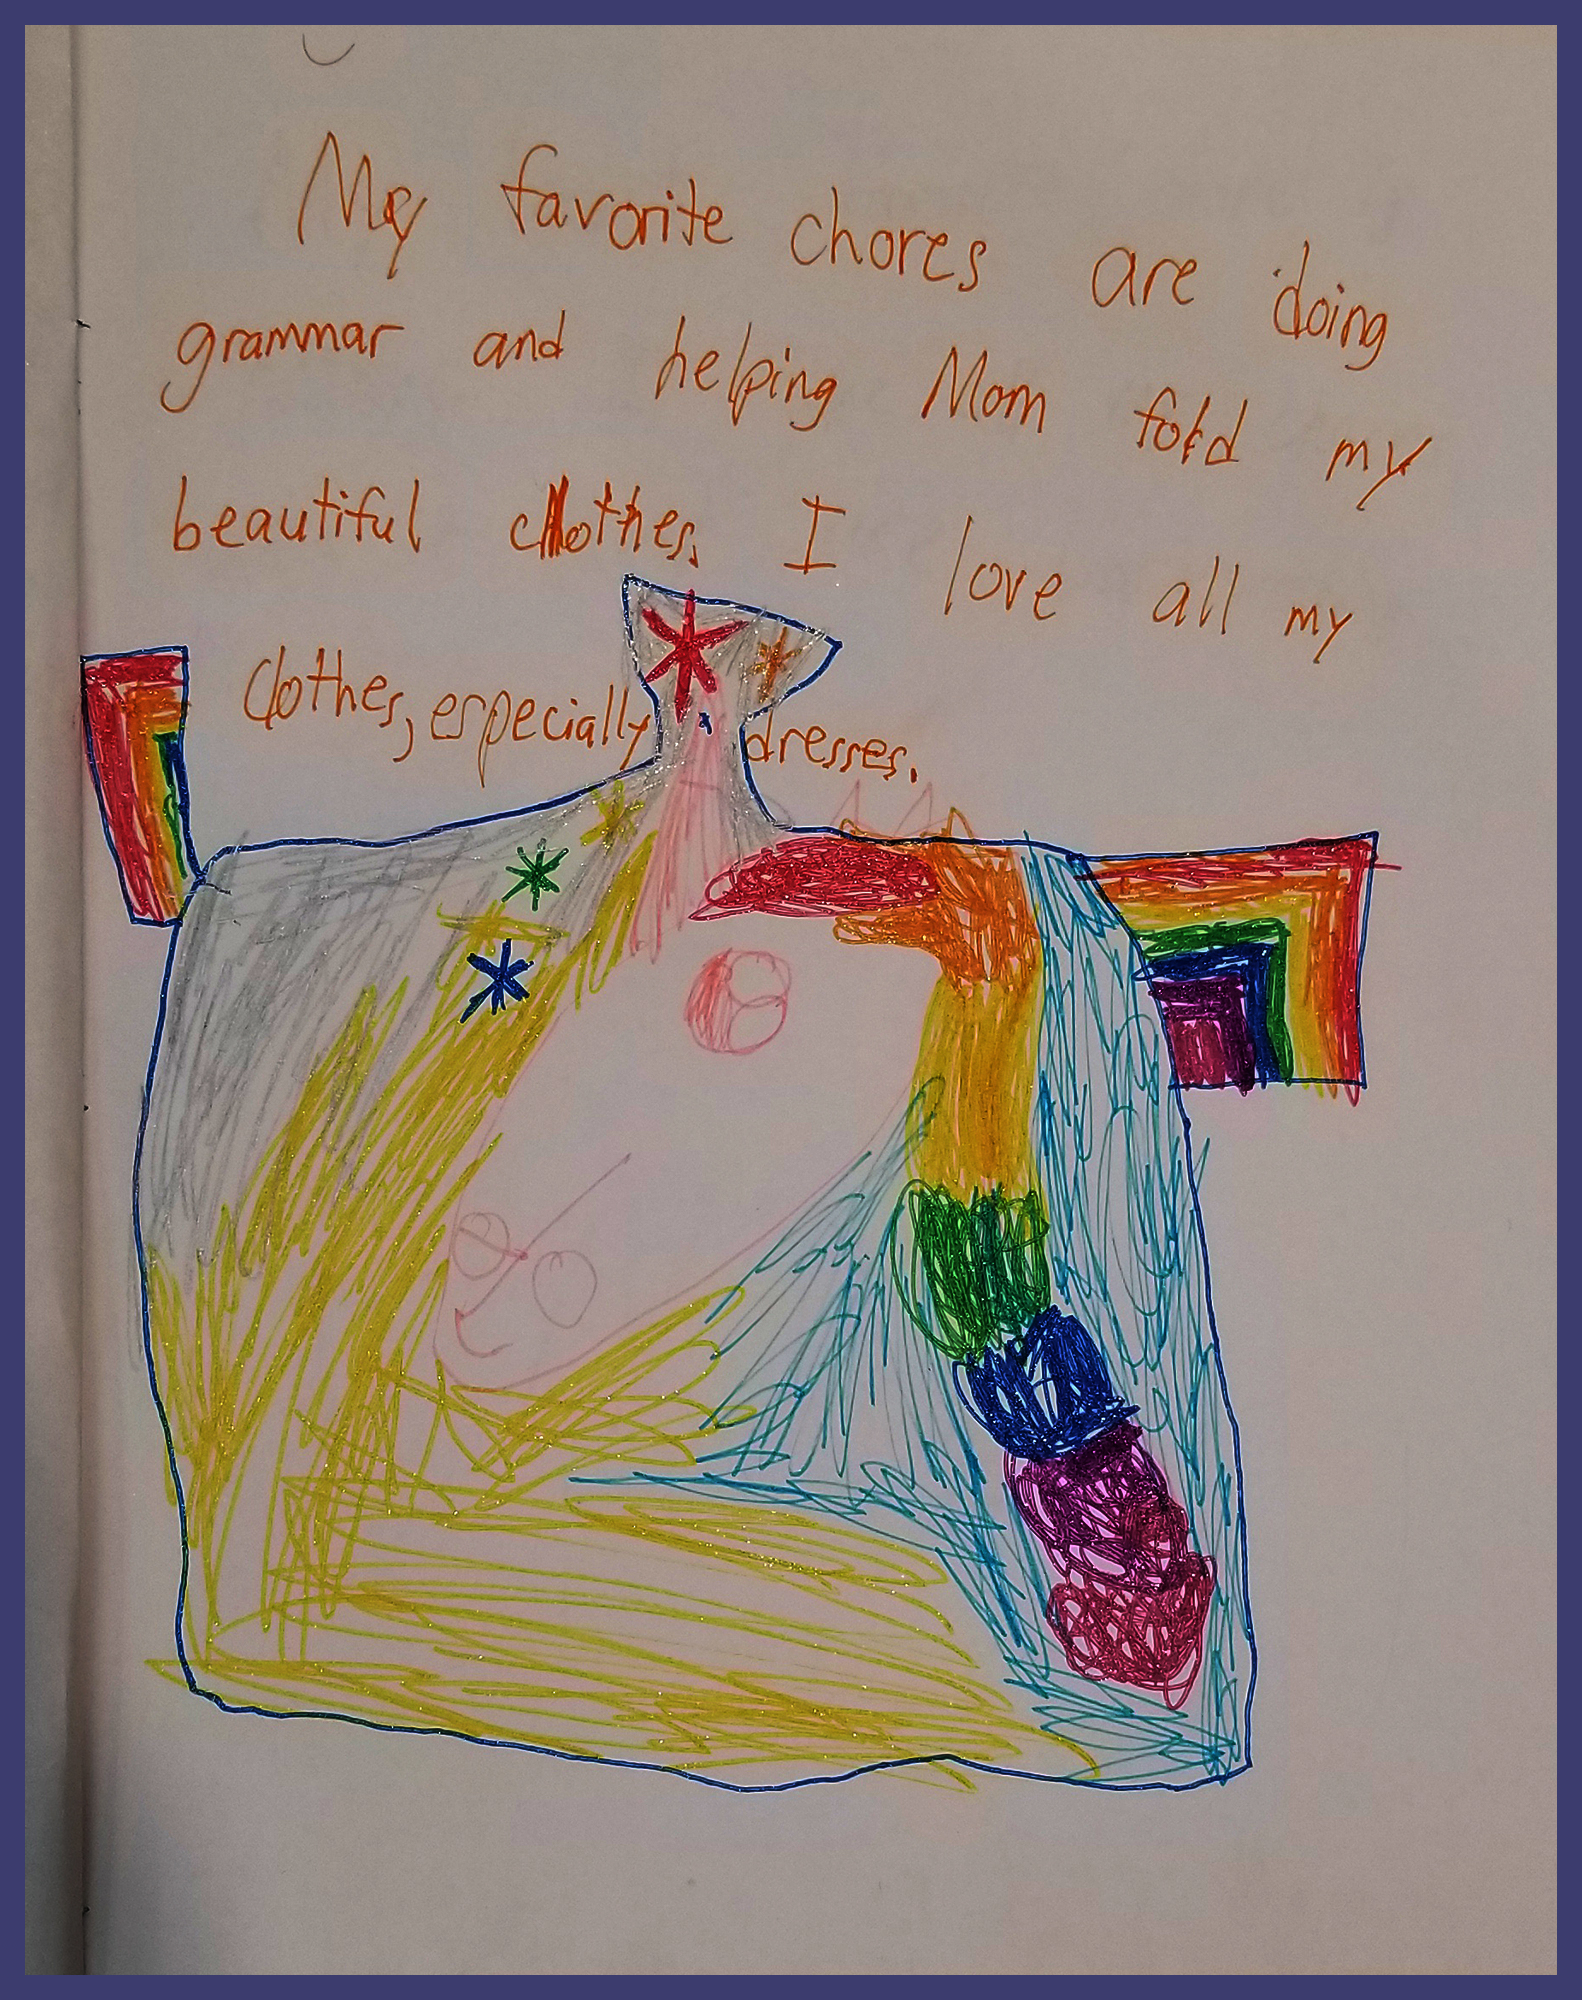 My favorite chores are doing
grammar and helping Mom fold my
beautiful clothes. I love all my
clothes, especially dresses.